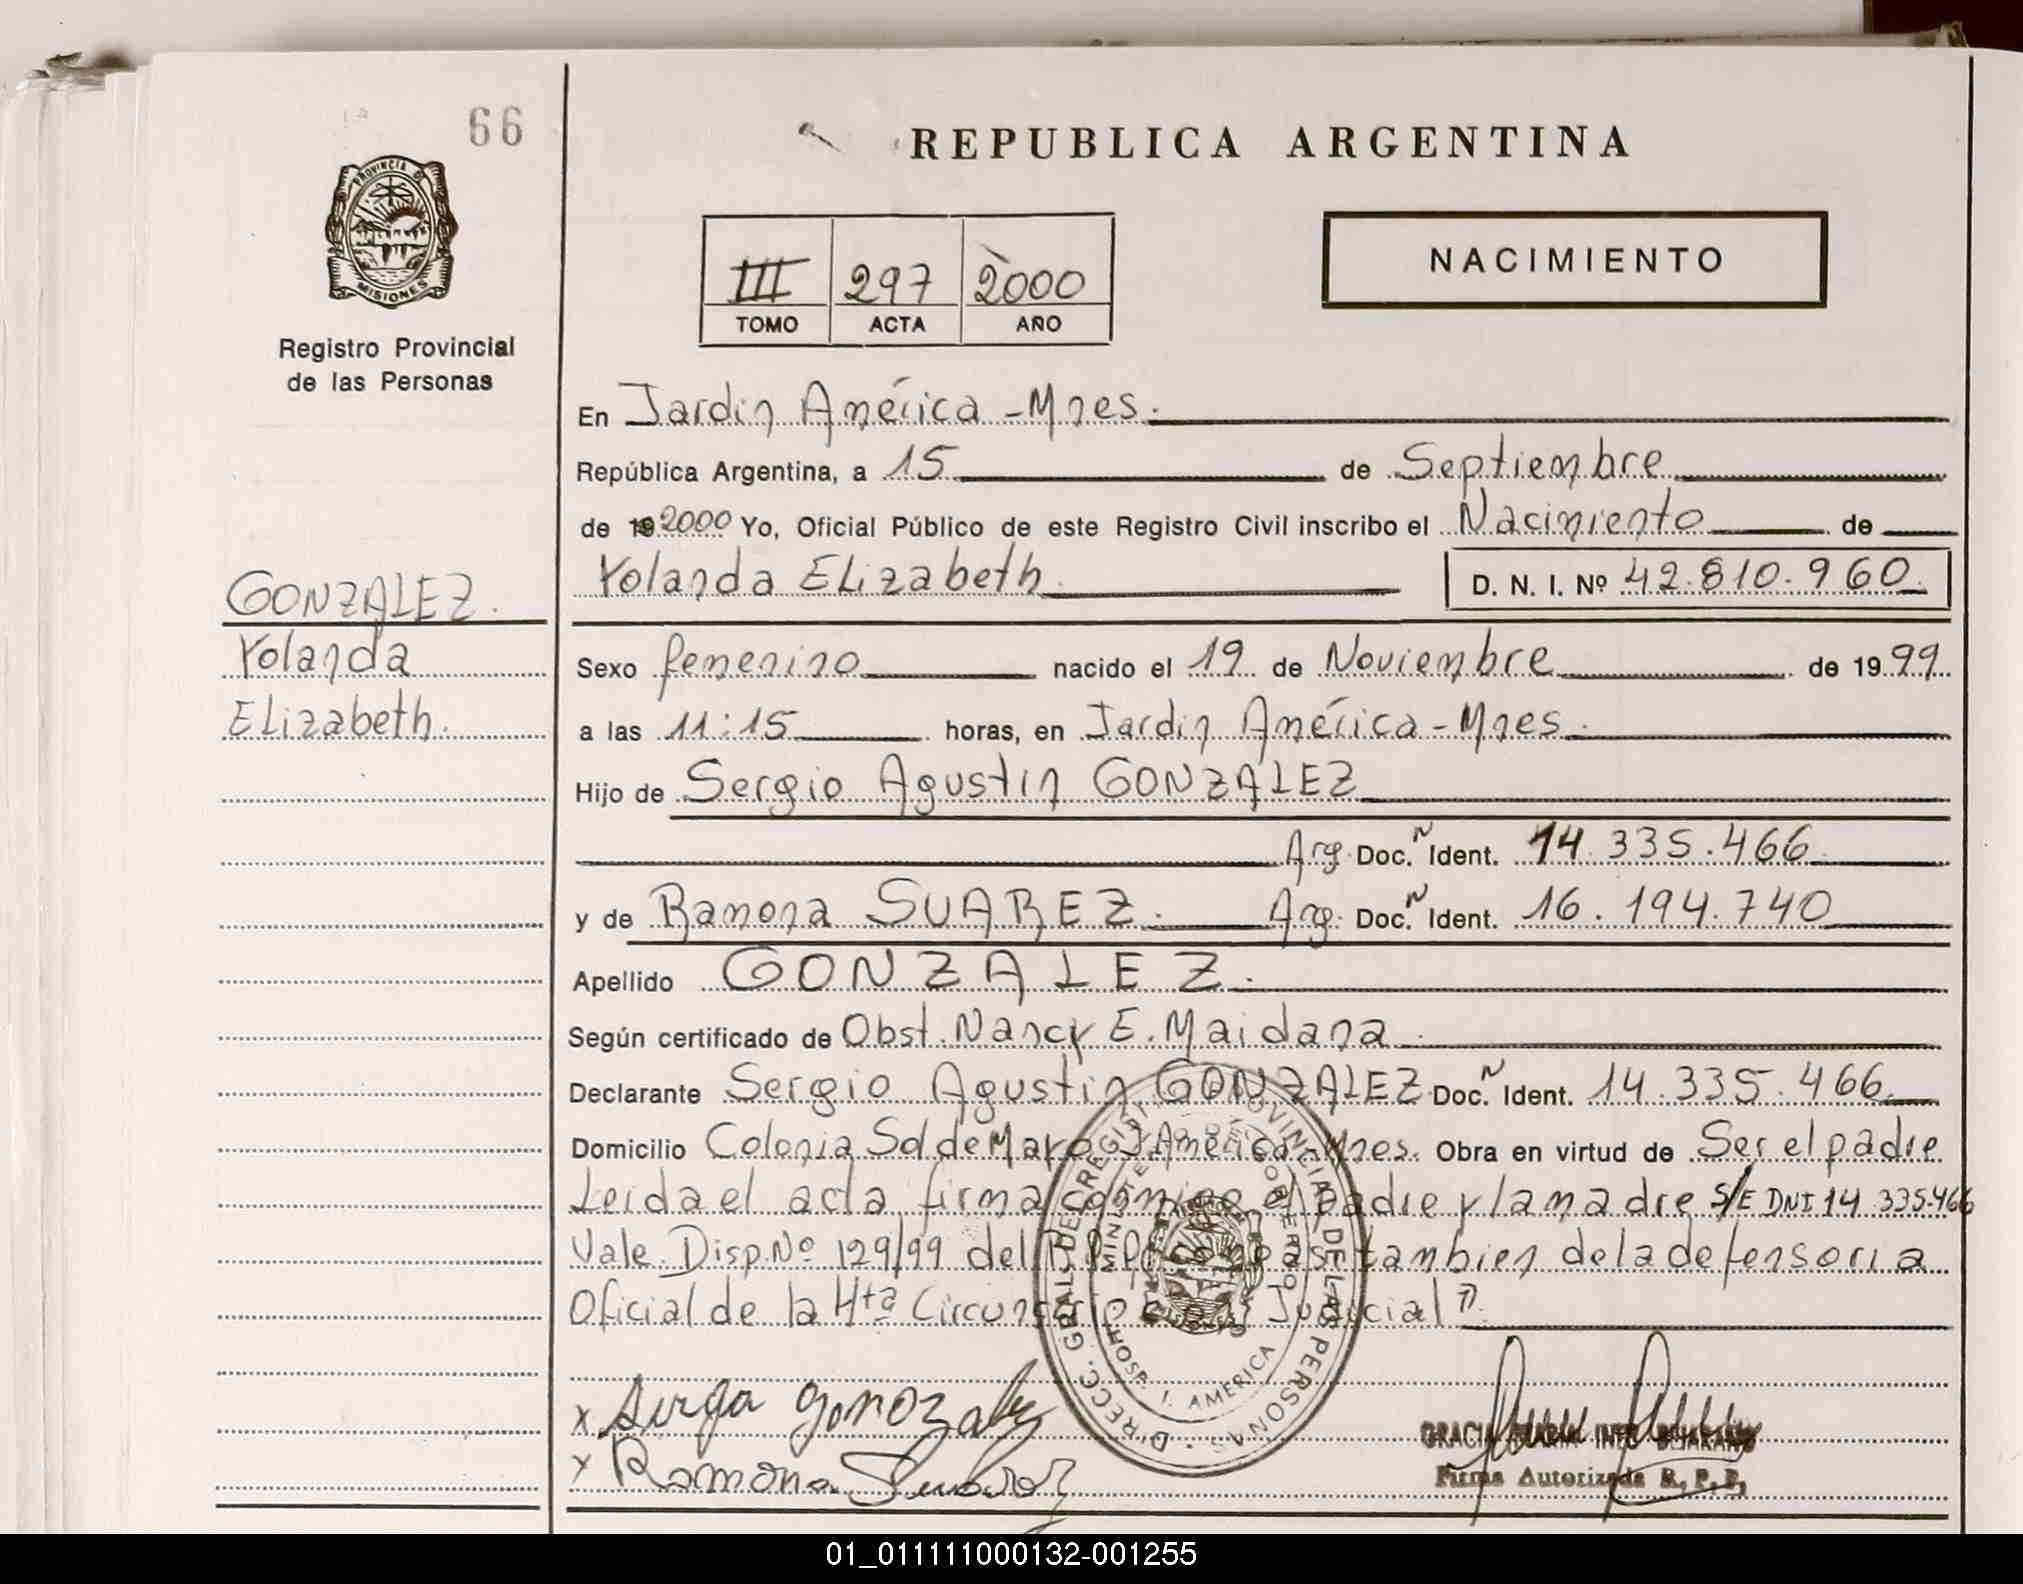 66
REPUBLICA ARGENTINA
PROVINCIA DE
MISIONES
Registro Provincial
de las Personas
III 297 2000
TOMO ACTA AÑO
NACIMIENTO
En Jardin América - Mnes.
República Argentina, a 15 de Septiembre
de 19 2000 Yo, Oficial Público de este Registro Civil inscribo el Nacimiento de
Yolanda Elizabeth D. N. I. Nº 42.810.960
GONZALEZ.
Yolanda
Elizabeth.
Sexo femenino nacido el 19 de Noviembre de 1999
a las 11:15 horas, en Jardin América - Mnes.
Hijo de Sergio Agustin GONZALEZ
Arg. Doc. N Ident. 14.335.466
y de Ramona SUAREZ. Arg. Doc. N Ident. 16.194.740
Apellido GONZALEZ.
Según certificado de Obst. Nancy E. Maidana
Declarante Sergio Agustin GONZALEZ Doc. N Ident. 14.335.466
Domicilio Colonia Sol de Mayo J. América - Mnes. Obra en virtud de Ser el padre
Leida el acta firma conmigo el padre y la madre S/E DNI 14 335.466
Vale. Disp. Nº 129/99 del tambien de la defensoria
Oficial de la 4ta Circunscripcion Judicial
DIRECC. GRAL. DE REGISTRO PROVINCIAL DE LAS PERSONAS
MINISTERIO DE GOBIERNO
HOSP. J. AMERICA
x Sergio gonozalez
x Ramona Suarez
GRACIELA MARIA INES BEJARANO
Firma Autorizada R. P. P.
01_011111000132-001255